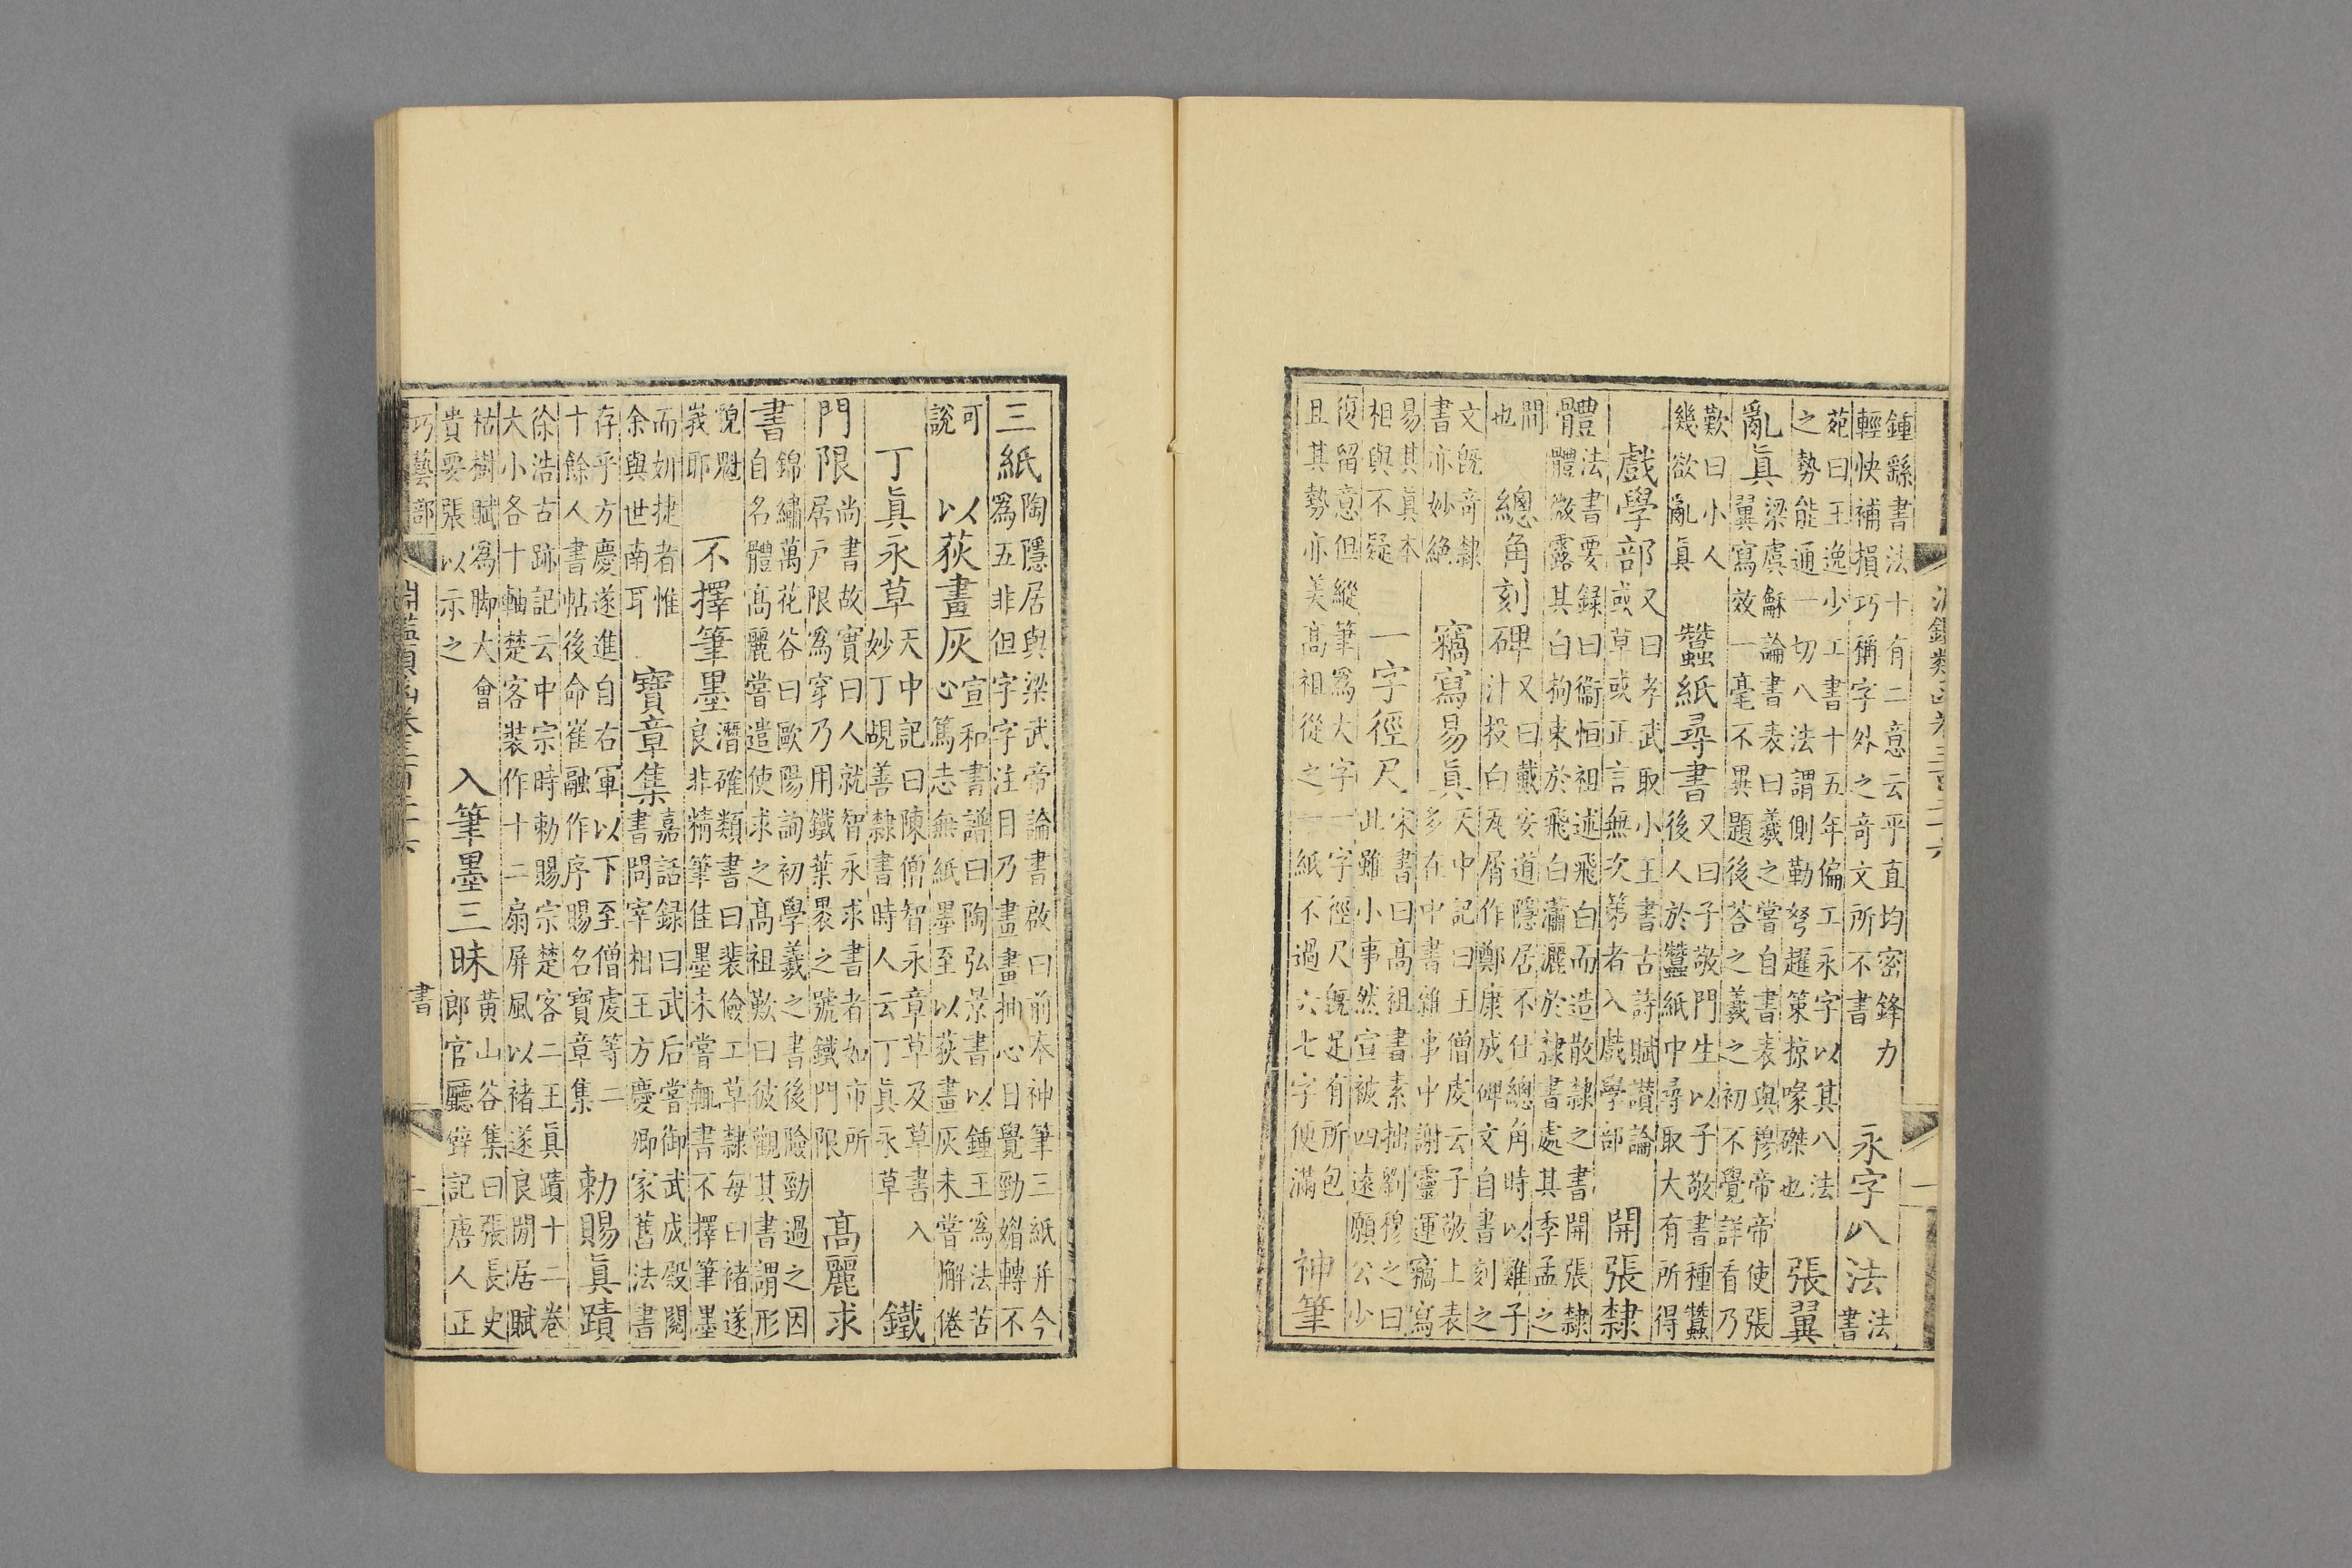 鍾繇書法十有二意云平直均密鋒力輕快補損巧稱字外之奇文所不書 永字八法 法書
苑曰王逸少工書十五年偏工永字以其八法之勢能通一切八法謂側勒努趯策掠啄磔也 張翼
亂眞 梁虞龢論書表曰羲之嘗自書表與穆帝帝使張翼寫效一毫不異題後荅之羲之初不覺詳看乃
歎曰小人幾欲亂眞 蠶紙尋書 又曰子敬門生以子敬書種蠶後人於蠶紙中尋取大有所得
戲學部 又曰孝武取小王書古詩賦讃論或草或正言無次第者入戲學部 開張隸
體 法書要録曰衞恒祖述飛白而造散隸之書開張隸體微露其白拘束於飛白瀟灑於隸書處其季孟之
間也 總角刻碑 又曰戴安道隱居不仕總角時以雞子汁投白瓦屑作鄭康成碑文自書刻之
文旣奇隸書亦妙絶 竊寫易眞 天中記曰王僧虔云子敬上表多在中書雜事中謝靈運竊寫
易其真本相與不疑 一字徑尺 宋書曰高祖書素拙劉穆之曰此雖小事然宣被四遠願公少
復留意但縱筆爲大字一字徑尺旣足有所包且其勢亦美高祖從之一紙不過六七字便滿 神筆
三紙 陶隱居與梁武帝論書啟曰前奉神筆三紙并今爲五非但字字注目乃畫畫抽心日覺勁媚轉不
可說 以荻畫灰 宣和書譜曰陶弘景書以鍾王爲法苦心篤志無紙墨至以荻畫灰未嘗懈倦
丁眞永草 天中記曰陳僧智永章草及草書入妙丁覘善隸書時人云丁眞永草 鐵
門限 尚書故實曰人就智永求書者如市所居戶限爲穿乃用鐵葉褁之號鐵門限 高麗求
書 錦繡萬花谷曰歐陽詢初學羲之書後險勁過之因自名體髙麗嘗遣使求之髙祖歎曰彼觀其書謂形
貌魁峩耶 不擇筆墨 潛確類書曰裴儉工草隸每曰褚遂良非精筆佳墨未嘗輒書不擇筆墨
而妍捷者惟余與世南耳 寶章集 嘉話録曰武后嘗御武成殿閱書問宰相王方慶卿家舊法書
存乎方慶遂進自右軍以下至僧虔等二十餘人書帖後命崔融作序賜名寶章集 勑賜眞蹟
徐浩古跡記云中宗時勅賜宗楚客二王真蹟十二卷大小各十軸楚客裝作十二扇屏風以褚遂良閒居賦
枯樹賦爲脚大會貴要張以示之 入筆墨三昧 黃山谷集曰張長史郎官廳壁記唐人正
巧藝部 書